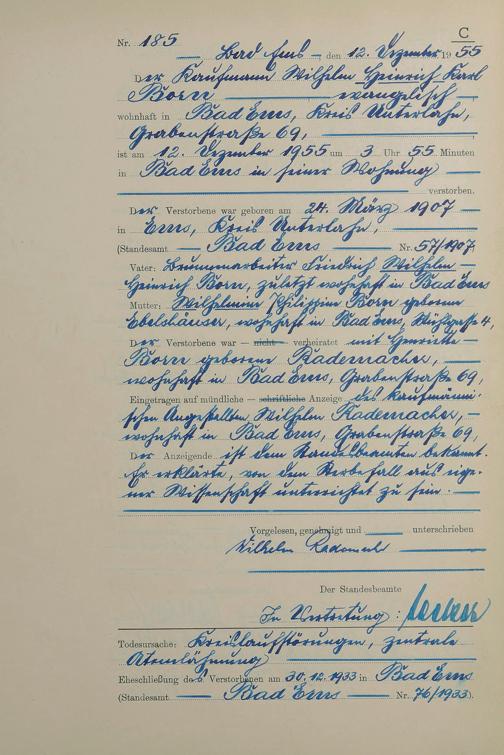 C
Nr. 185
Bad Ems, den 12. Dezember 1955
Der Kaufmann Wilhelm Heinrich Karl
Born evangelisch
wohnhaft in Bad Ems, Kreis Unterlahn,
Grabenstraße 69,
ist am 12. Dezember 1955 um 3 Uhr 55 Minuten
in Bad Ems in seiner Wohnung
verstorben.
Der Verstorbene war geboren am 24. März 1907
in Ems, Kreis Unterlahn,
(Standesamt Bad Ems Nr. 57/1907)
Vater: Brunnenarbeiter Friedrich Wilhelm
Heinrich Born, zuletzt wohnhaft in Bad Ems
Mutter: Wilhelmine Philippine Born geborene
Ebelshäuser, wohnhaft in Bad Ems, Mühlgasse 4,
Der Verstorbene war – nicht – verheiratet mit Henriette
Born geborene Rademacher,
wohnhaft in Bad Ems, Grabenstraße 69,
Eingetragen auf mündliche – schriftliche Anzeige des kaufmänni-
schen Angestellten Wilhelm Rademacher,
wohnhaft in Bad Ems, Grabenstraße 69,
Der Anzeigende ist dem Standesbeamten bekannt.
Er erklärte, von dem Sterbefall aus eige-
ner Wissenschaft unterrichtet zu sein.
Vorgelesen, genehmigt und unterschrieben
Wilhelm
Der Standesbeamte
In Vertretung:
Todesursache: Kreislaufstörungen, zentrale
Atemlähmung
Eheschließung des Verstorbenen am 30.12.1933 in Bad Ems
(Standesamt Bad Ems Nr. 76/1933).